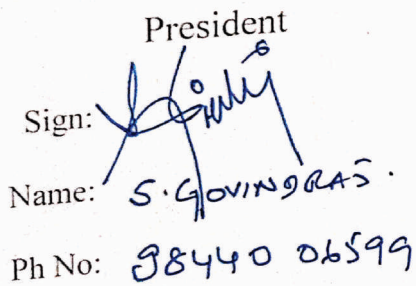 President
Sign:
Name: S. GOVINDRAJ.
Ph No: 98440 06599